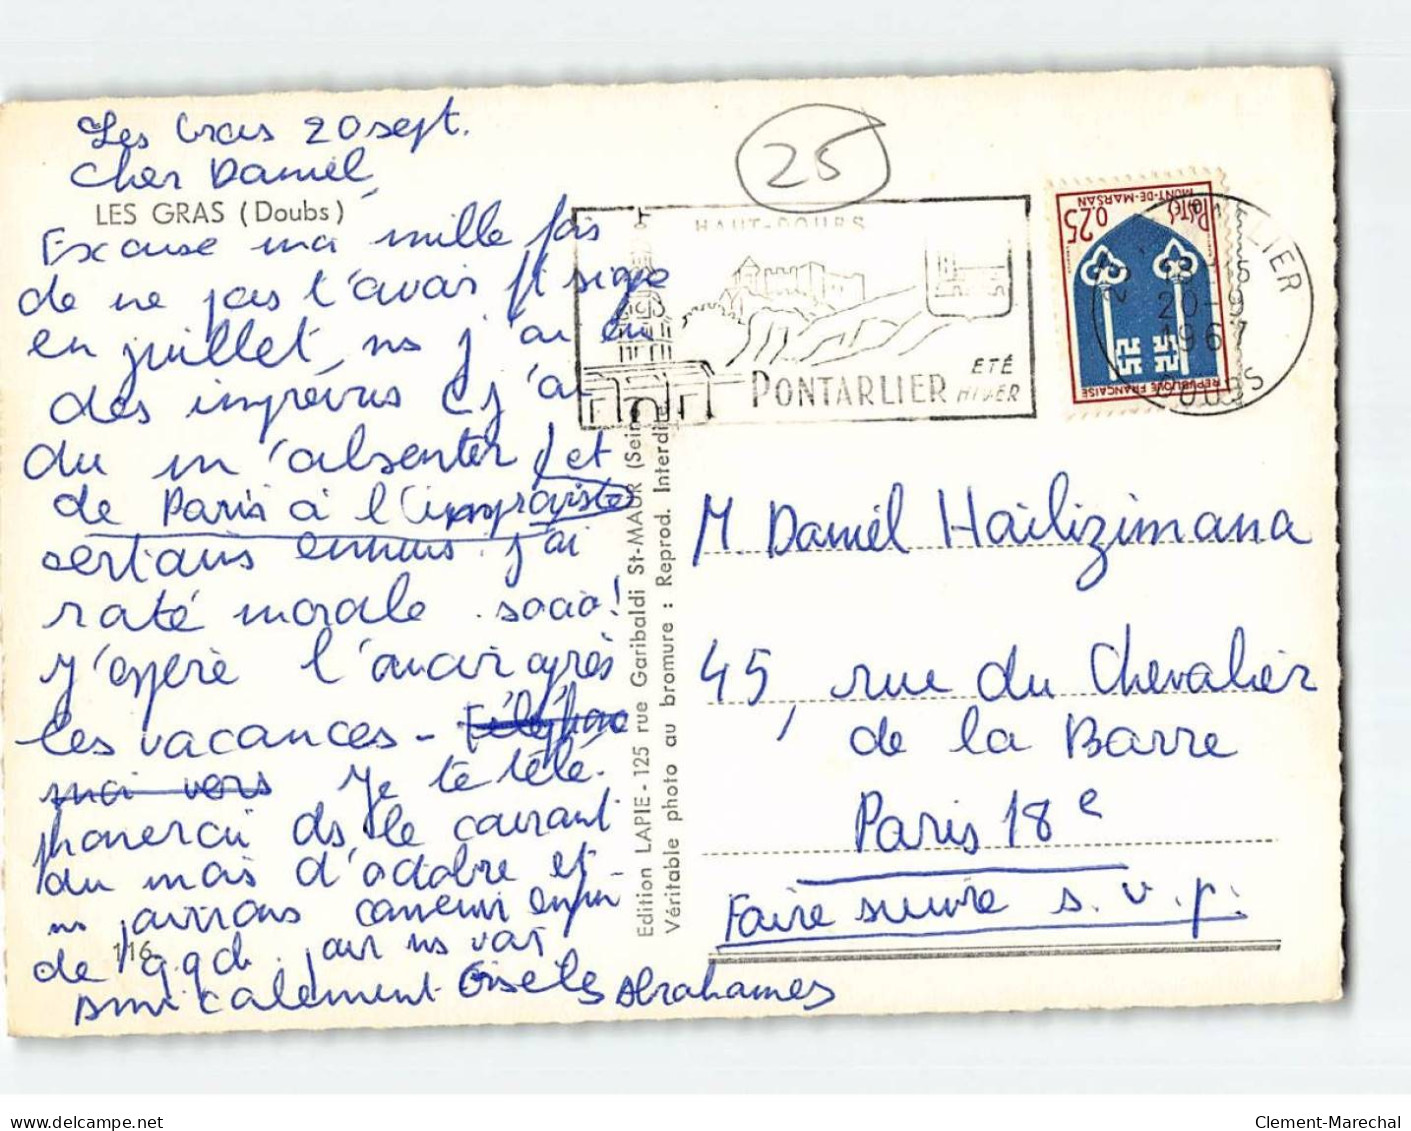 Les Gras 20 sept.
Cher Daniel,
LES GRAS (Doubs)
Excuse ma mille fois
de ne pas t'avoir ft signe
en juillet, ms j'ai eu
des imprévus et j'ai
du m'absenter
de Paris à l'improviste
et
certains ennuis. j'ai
raté morale socio!
J'espère l'avoir après
les vacances - Téléphone
moi vers Je te télé-
phonerai ds le courant
du mois d'octobre et
ns pourrons convenir enfin
de q.q ch. pour ns voir
116
Amicalement Gisèle Abrahames
25
HAUT-DOUBS
PONTARLIER
ÉTÉ
HIVER
0,25
POSTES
MONT-DE-MARSAN
REPUBLIQUE FRANÇAISE
20-9
1967
DOUBS
Edition LAPIE - 125 rue Garibaldi St-MAUR (Seine)
Véritable photo au bromure : Reprod. Interdite
M. Daniel Hailizimana
45, rue du Chevalier
de la Barre
Paris 18e
Faire suivre s.v.p.
delcampe.net
Clement-Marechal